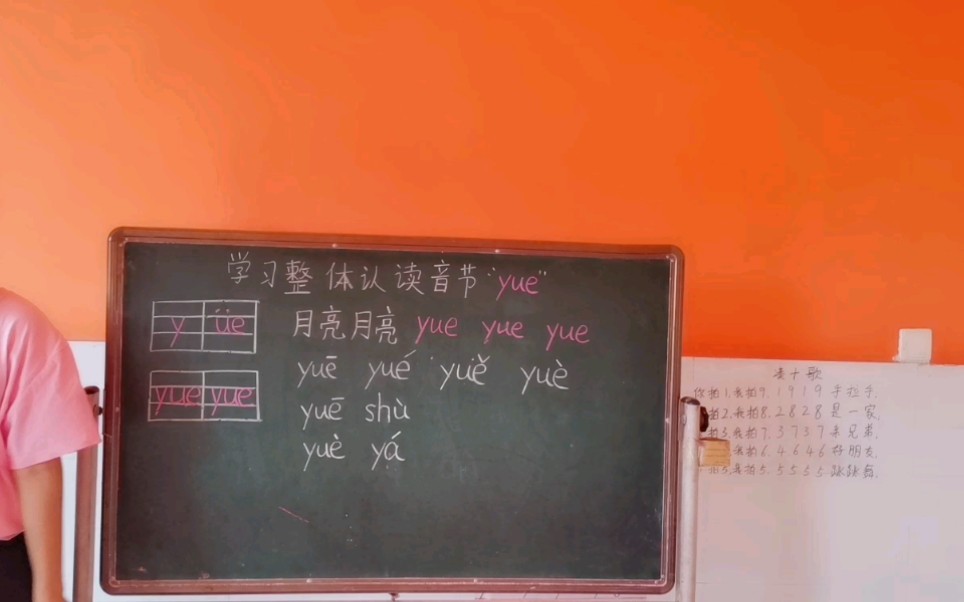 学习整体认读音节"yue"
y üe
月亮月亮 yue yue yue
yuē yué yuě yuè
yue yue
yuē shù
yuè yá
凑十歌
你拍1,我拍9,1919手拉手,
拍2,我拍8,2828是一家,
拍3,我拍7,3737亲兄弟,
我拍6,4646好朋友,
拍5,我拍5,5555跳跳舞,